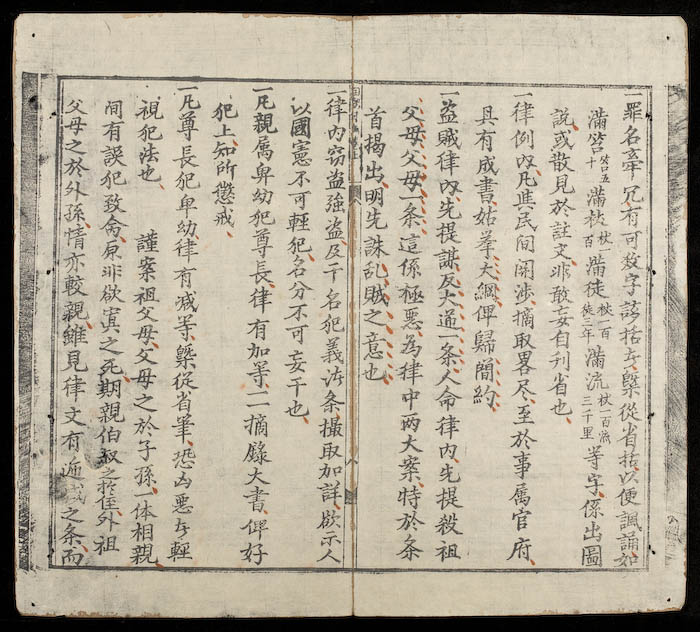 一罪名率冗有可数字該括者槩從省括以便諷誦如
滿笞笞五十滿杖杖一百滿徒杖一百徒三年滿流杖一百流三千里等字係出圖
說或散見於註文非敢妄自刋省也
一律例內凡與民間関渉摘取畧尽至於事属官府
具有成書姑挙大綱俾歸簡約
一盗賊律內先提謀反大逆一条人命律內先提殺祖
父母父母一条這係極悪為律中两大案特於条
首揭出明先誅乱賊之意也
一律內窃盗強盗及干名犯義諸条撮取加詳欲示人
以國憲不可輕犯名分不可妄干也
一凡親属卑幼犯尊長律有加等一一摘錄大書俾好
犯上知所懲戒
一凡尊長犯卑幼律有減等槩從省筆恐凶悪者輕
視犯法也 謹案祖父母父母之於子孫一体相親
間有誤犯致命原非欲寘之死期親伯叔之於侄外祖
父母之於外孫情亦較親雖見律文有逓減之条而